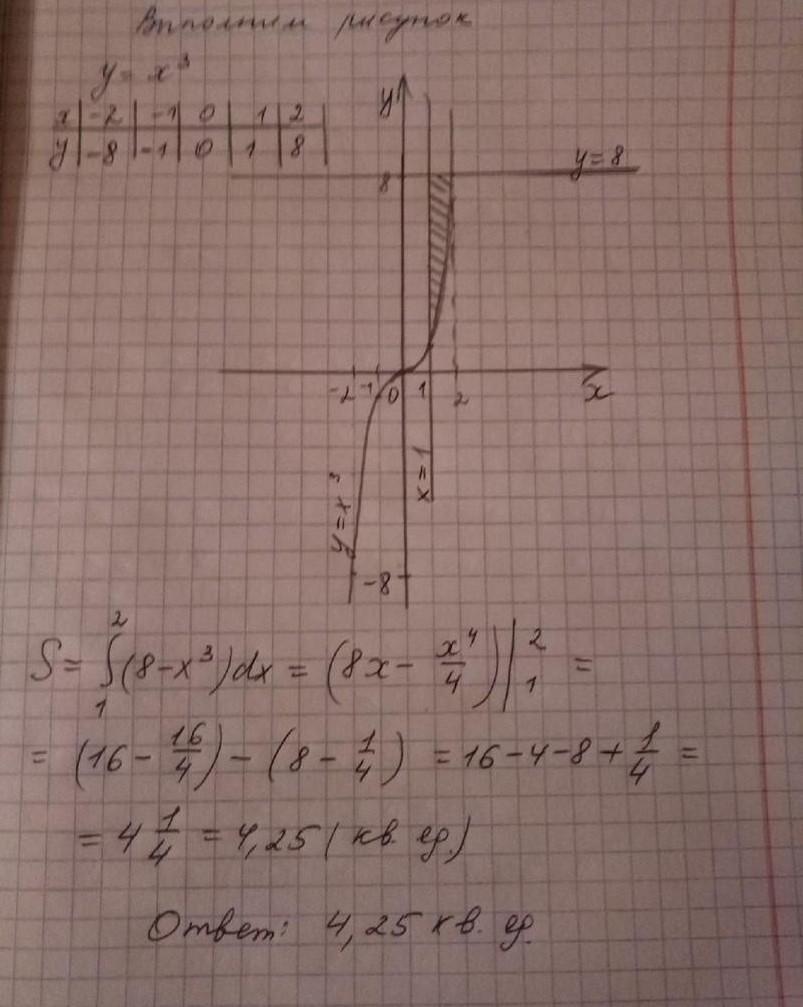 Выполним рисунок
y = x³
x | -2 | -1 | 0 | 1 | 2
y | -8 | -1 | 0 | 1 | 8
y
8
y = 8
-2 -1 0 1 2 x
x = 1
y = x³
-8
S = ∫₁² (8 - x³) dx = (8x - x⁴/4) |₁² =
= (16 - 16/4) - (8 - 1/4) = 16 - 4 - 8 + 1/4 =
= 4 1/4 = 4,25 ( кв. ед.)
Ответ: 4,25 кв. ед.